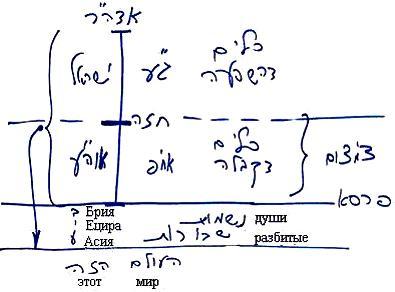 אדה"ר
ישראל ג"ע כלים דהשפעה
חזה
או"ה אח"פ כלים דקבלה צמצום
פרסא
ב Брия נשמות души
י Ецира
ע Асия שבורות разбитые
העולם הזה
этот мир